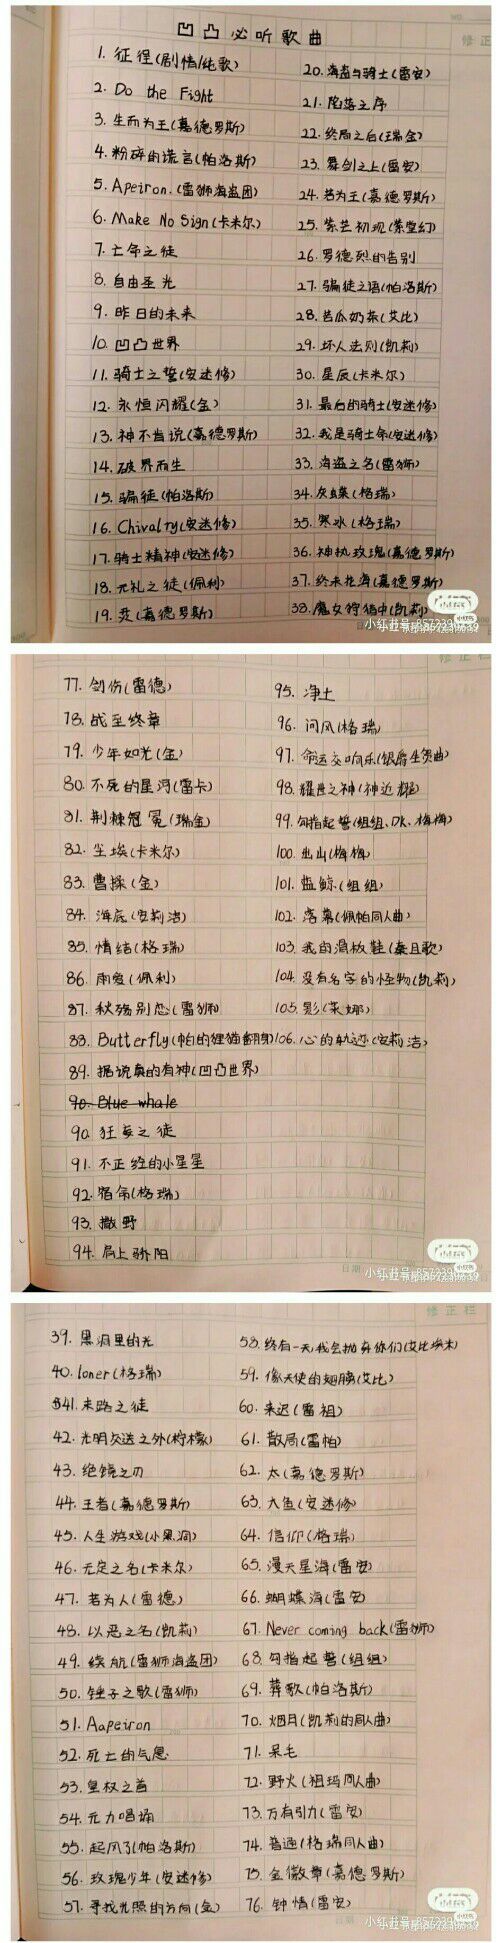 修正
凹凸必听歌曲
1. 征程(剧情/纯歌)
2. Do the Fight
3. 生而为王(嘉德罗斯)
4. 粉碎的谎言(帕洛斯)
5. Apeiron.(雷狮海盗团)
6. Make No Sign(卡米尔)
7. 亡命之徒
8. 自由圣光
9. 昨日的未来
10. 凹凸世界
11. 骑士之誓(安迷修)
12. 永恒闪耀(金)
13. 神不肯说(嘉德罗斯)
14. 破界而生
15. 骗徒(帕洛斯)
16. Chivalry(安迷修)
17. 骑士精神(安迷修)
18. 无礼之徒(佩利)
19. 烎(嘉德罗斯)
20. 海盗与骑士(雷安)
21. 陷落之序
22. 终局之后(瑞金)
23. 舞剑之上(雷安)
24. 若为王(嘉德罗斯)
25. 紫芒初现(紫堂幻)
26. 罗德烈的告别
27. 骗徒之语(帕洛斯)
28. 苦瓜奶茶(艾比)
29. 坏人法则(凯莉)
30. 星辰(卡米尔)
31. 最后的骑士(安迷修)
32. 我是骑士命(安迷修)
33. 海盗之名(雷狮)
34. 灰蝶(格瑞)
35. 寒冰(格瑞)
36. 神执玫瑰(嘉德罗斯)
37. 终末花海(嘉德罗斯)
38. 魔女狩猎中(凯莉)
小红书号:8572390
77. 剑伤(雷德)
78. 战至终章
79. 少年如光(金)
80. 不死的星河(雷卡)
81. 荆棘冠冕(瑞金)
82. 尘埃(卡米尔)
83. 曹操(金)
84. 海底(安莉洁)
85. 情结(格瑞)
86. 雨爱(佩利)
87. 秋殇别恋(雷狮)
88. Butterfly(帕的狸猫翻身)
89. 据说真的有神(凹凸世界)
90. Blue whale
90. 狂妄之徒
91. 不正经的小星星
92. 宿命(格瑞)
93. 撒野
94. 肩上骄阳
95. 净土
96. 问风(格瑞)
97. 命运交响乐(银爵生贺曲)
98. 耀世之神(神近耀)
99. 勾指起誓(组组、DK、梅梅)
100. 出山(梅梅)
101. 蓝鲸(组组)
102. 落幕(佩帕同人曲)
103. 我的滑板鞋(蒙且歌)
104. 没有名字的怪物(凯莉)
105. 影(莱娜)
106. 心的轨迹(安莉洁)
小红书号:8572390
修正栏
39. 黑洞里的光
40. loner(格瑞)
41. 末路之徒
42. 光明灰送之外(柠檬)
43. 绝镜之刃
44. 王者(嘉德罗斯)
45. 人生游戏(小黑洞)
46. 无定之名(卡米尔)
47. 若为人(雷德)
48. 以恶之名(凯莉)
49. 续航(雷狮海盗团)
50. 锤子之歌(雷狮)
51. Aapeiron
52. 死亡的气息
53. 皇权之首
54. 元力唱诵
55. 起风了(帕洛斯)
56. 玫瑰少年(安迷修)
57. 寻找光照的方向(金)
58. 终有一天我会抛弃你们(艾比埃米)
59. 像天使的翅膀(艾比)
60. 来迟(雷祖)
61. 散局(雷帕)
62. 太(嘉德罗斯)
63. 大鱼(安迷修)
64. 信仰(格瑞)
65. 漫天星海(雷安)
66. 蝴蝶海(雷安)
67. Never coming back(雷狮)
68. 勾指起誓(组组)
69. 葬歌(帕洛斯)
70. 烟月(凯莉的同人曲)
71. 呆毛
72. 野火(祖玛同人曲)
73. 万有引力(雷安)
74. 普通(格瑞同人曲)
75. 金徽章(嘉德罗斯)
76. 钟情(雷安)
小红书号:8572390